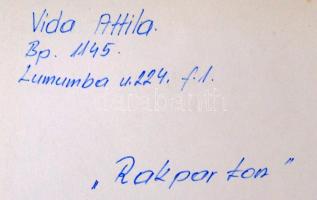 Vida Attila.
Bp. 1145.
Lumumba u.224. f.1.
darabanth
„Rakparton"